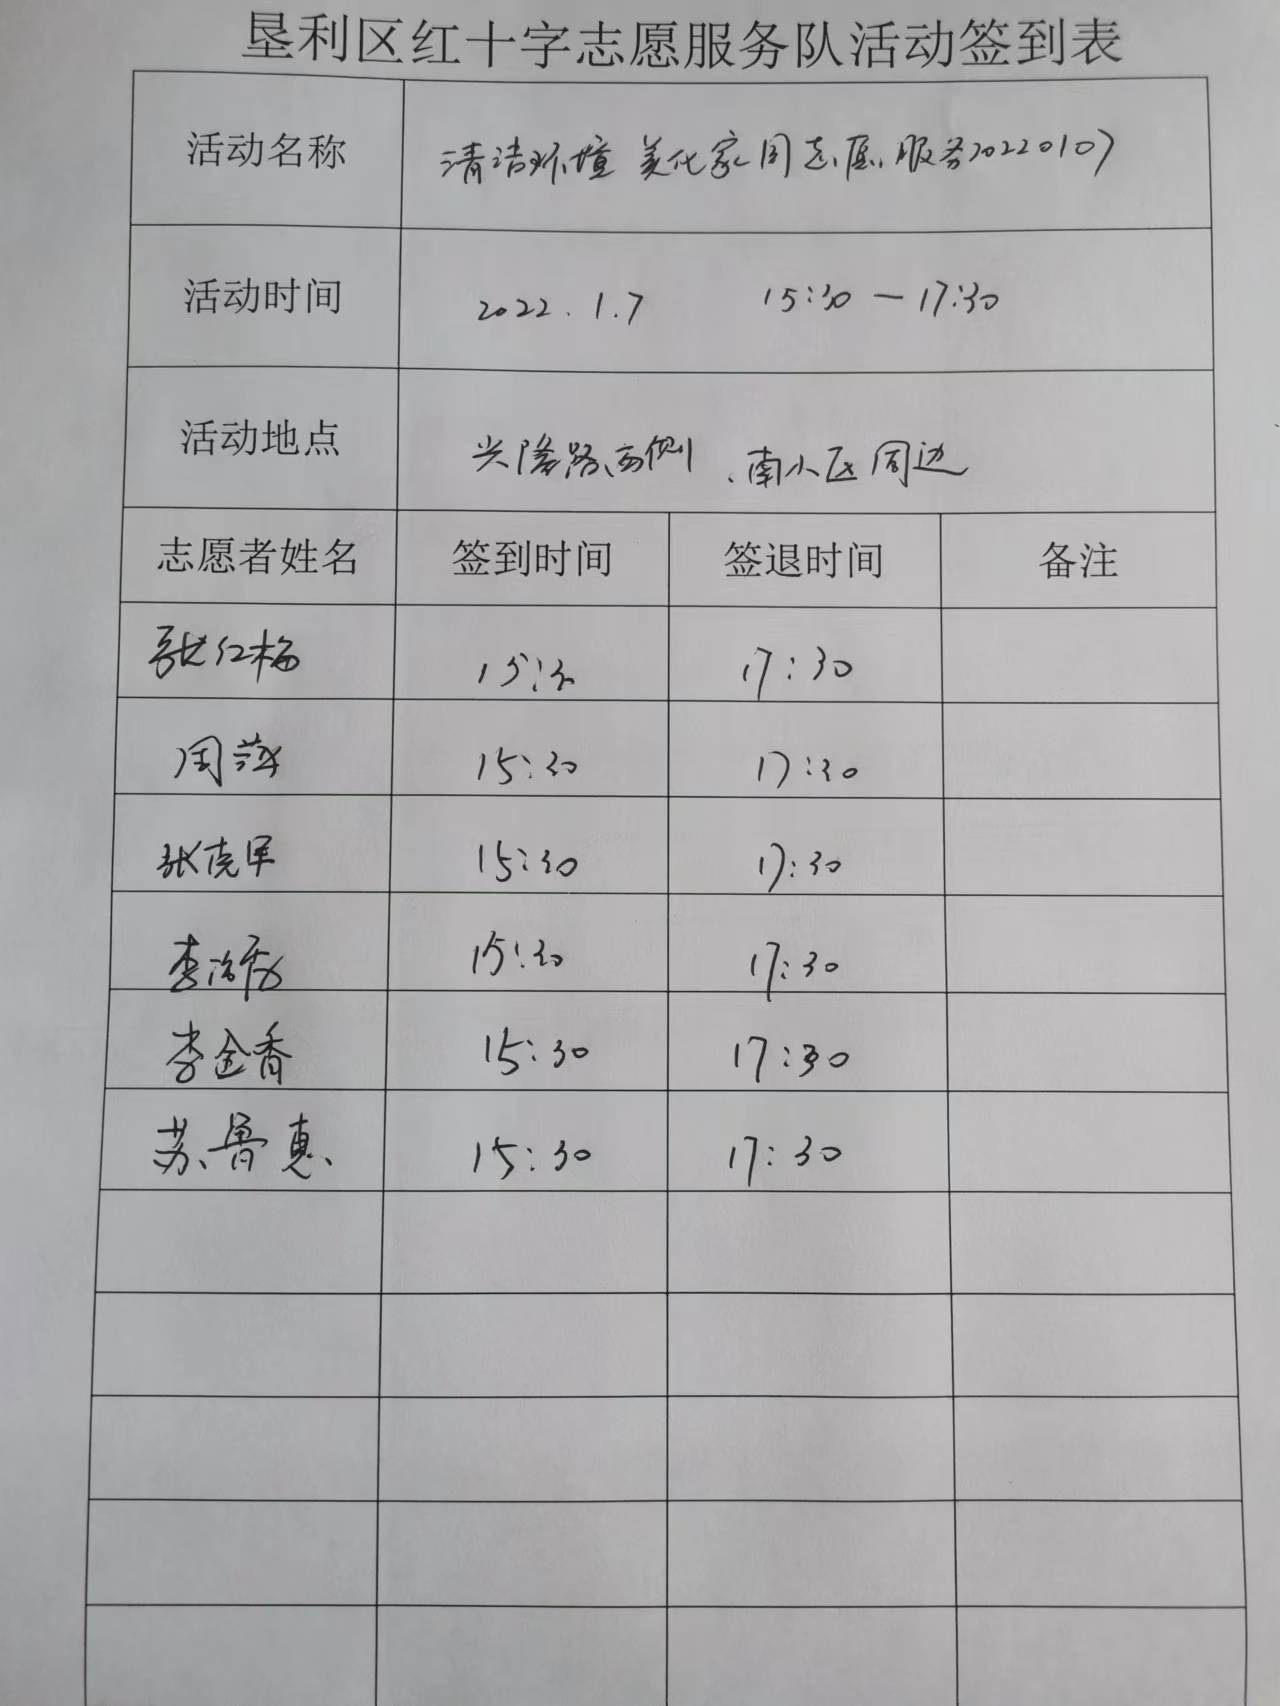 垦利区红十字志愿服务队活动签到表
活动名称 清洁环境 美化家园志愿服务20220107
活动时间 2022.1.7 15:30—17:30
活动地点 兴隆路西侧、南小区周边
志愿者姓名 签到时间 签退时间 备注
张红梅 15:30 17:30
周萍 15:30 17:30
张克军 15:30 17:30
李 15:30 17:30
李金香 15:30 17:30
苏鲁惠 15:30 17:30